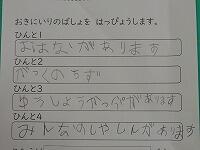 おきにいりのばしょを はっぴょうします。
ひんと1
おはながあります
ひんと2
がっくのちず
ひんと3
ゆうしょうかっぷがあります
ひんと4
みんなのしゃしんがあります